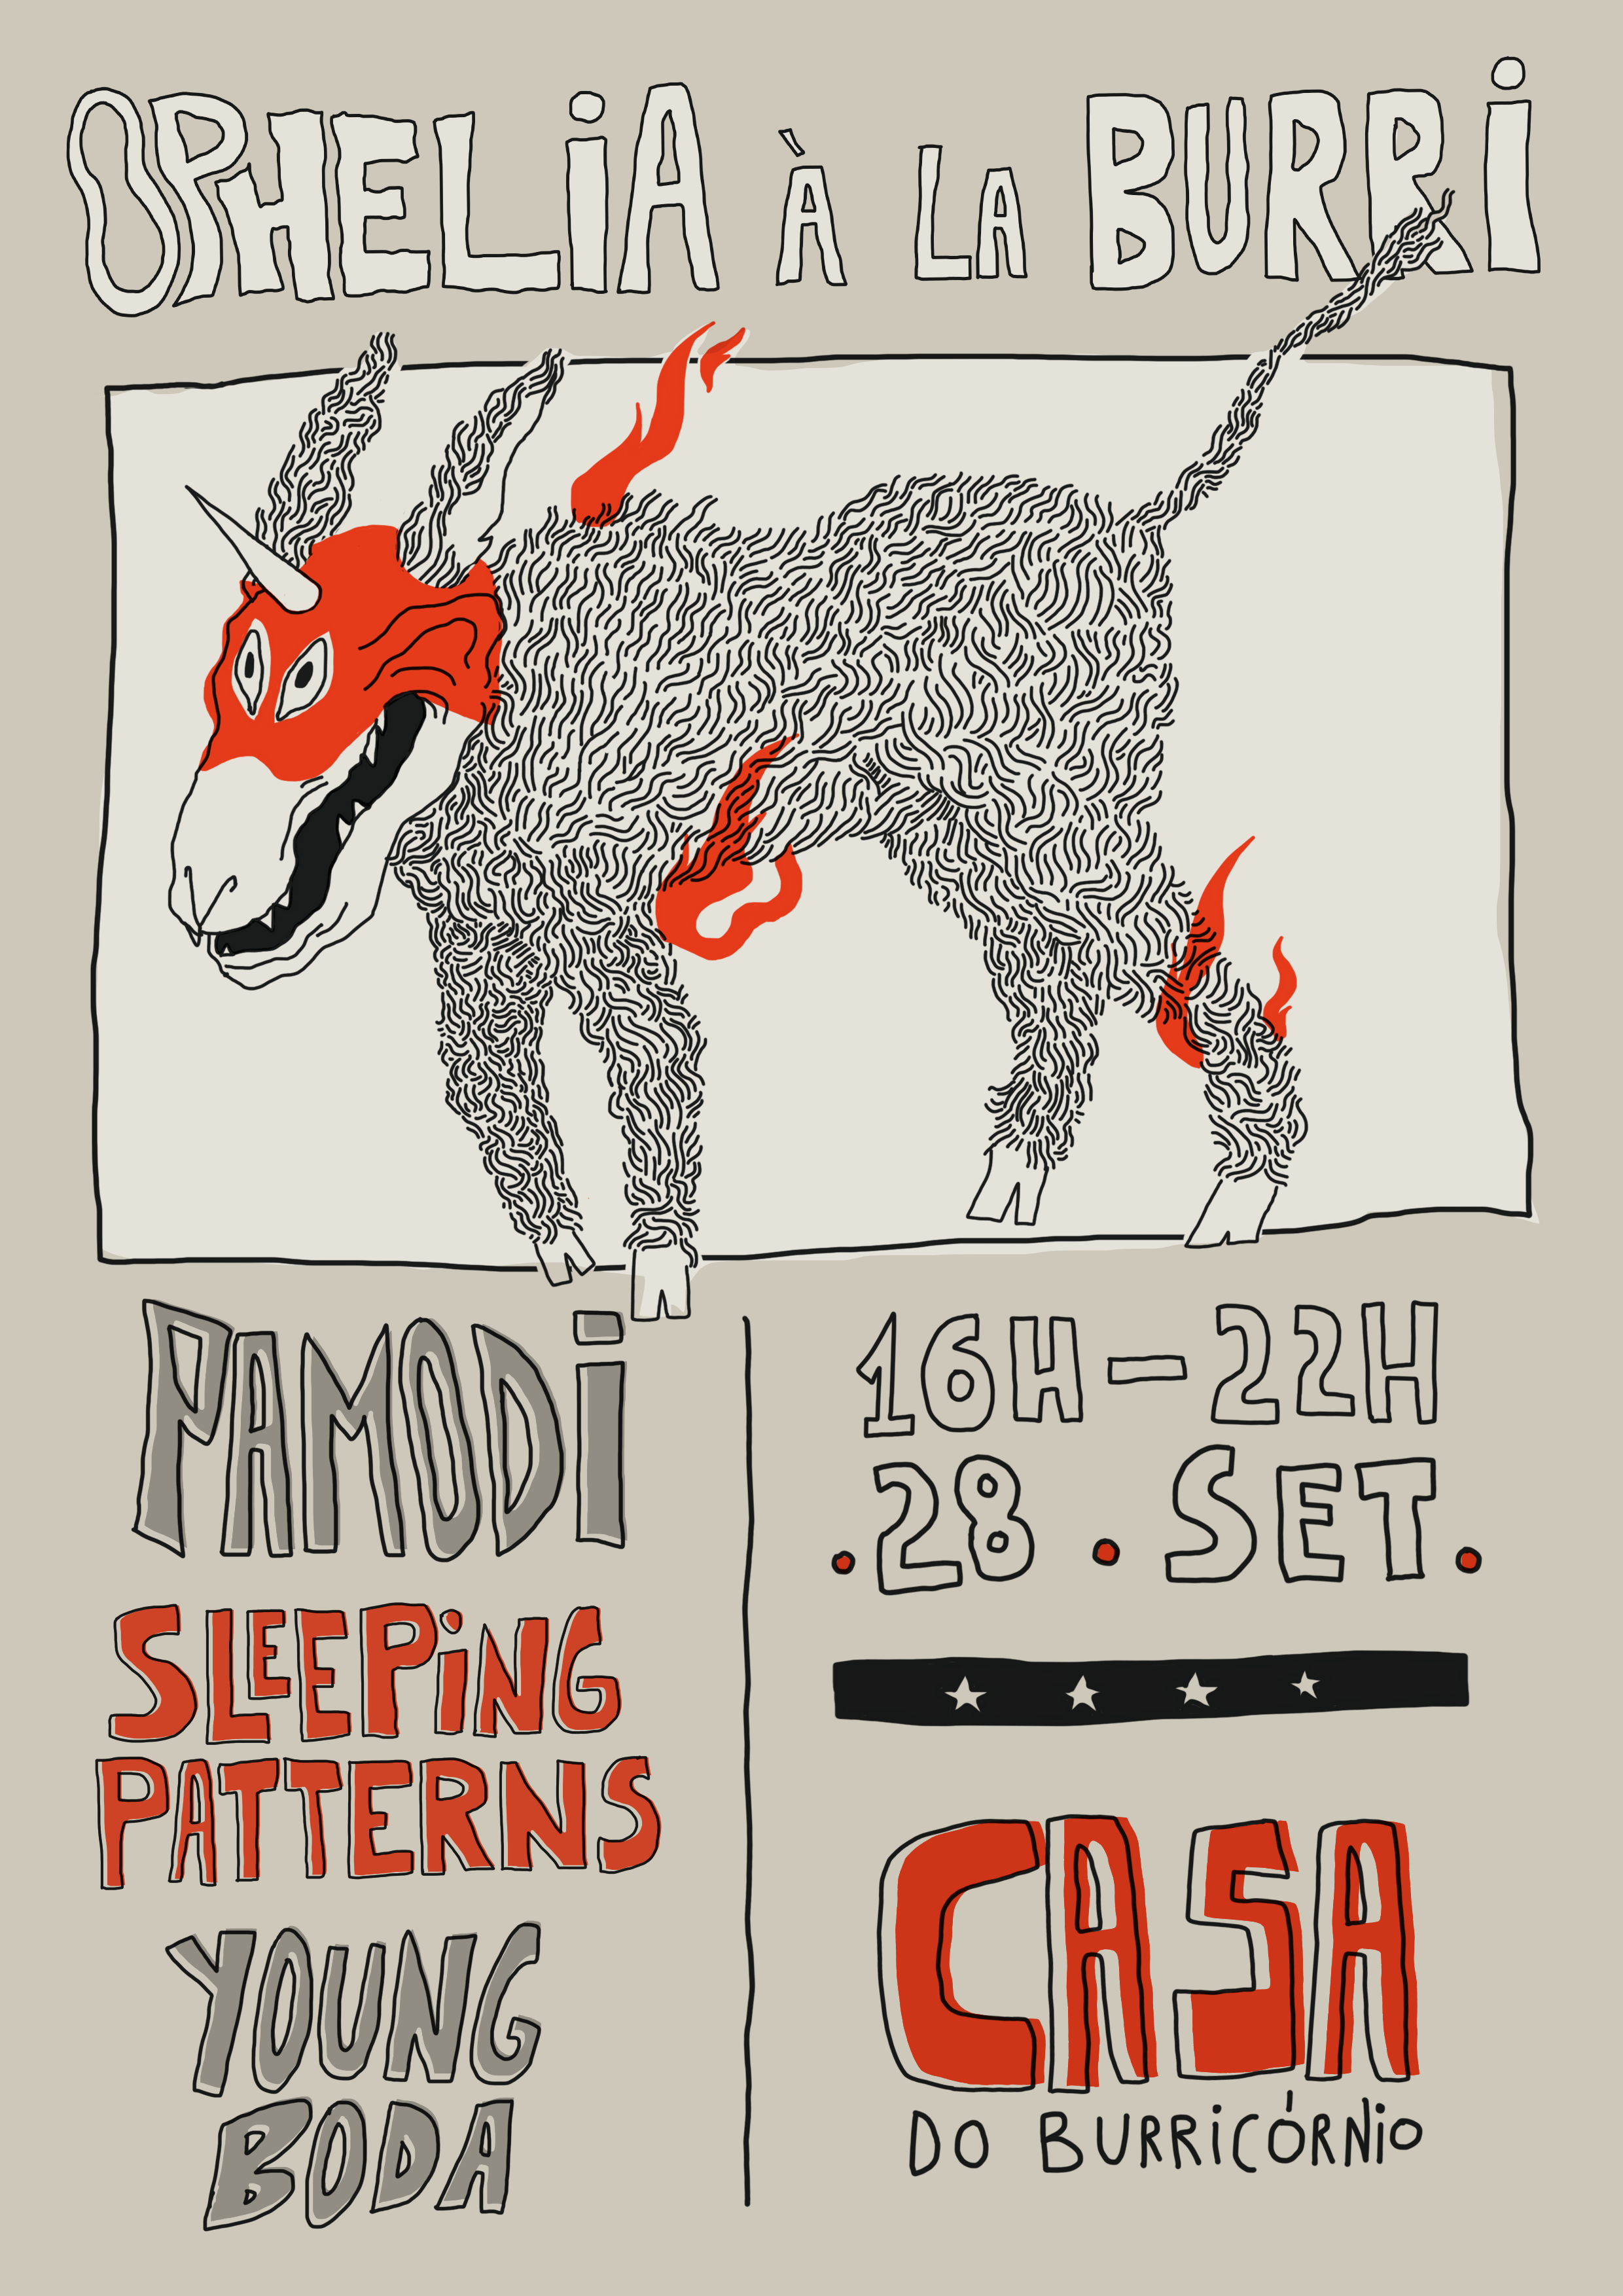 OPHELiA À LA BURRi
PAMODi
SLEEPiNG
PATTERNS
YOUNG
BODA
16H—22H
.28 . SET.
CASA
DO BURRiCÓRNiO